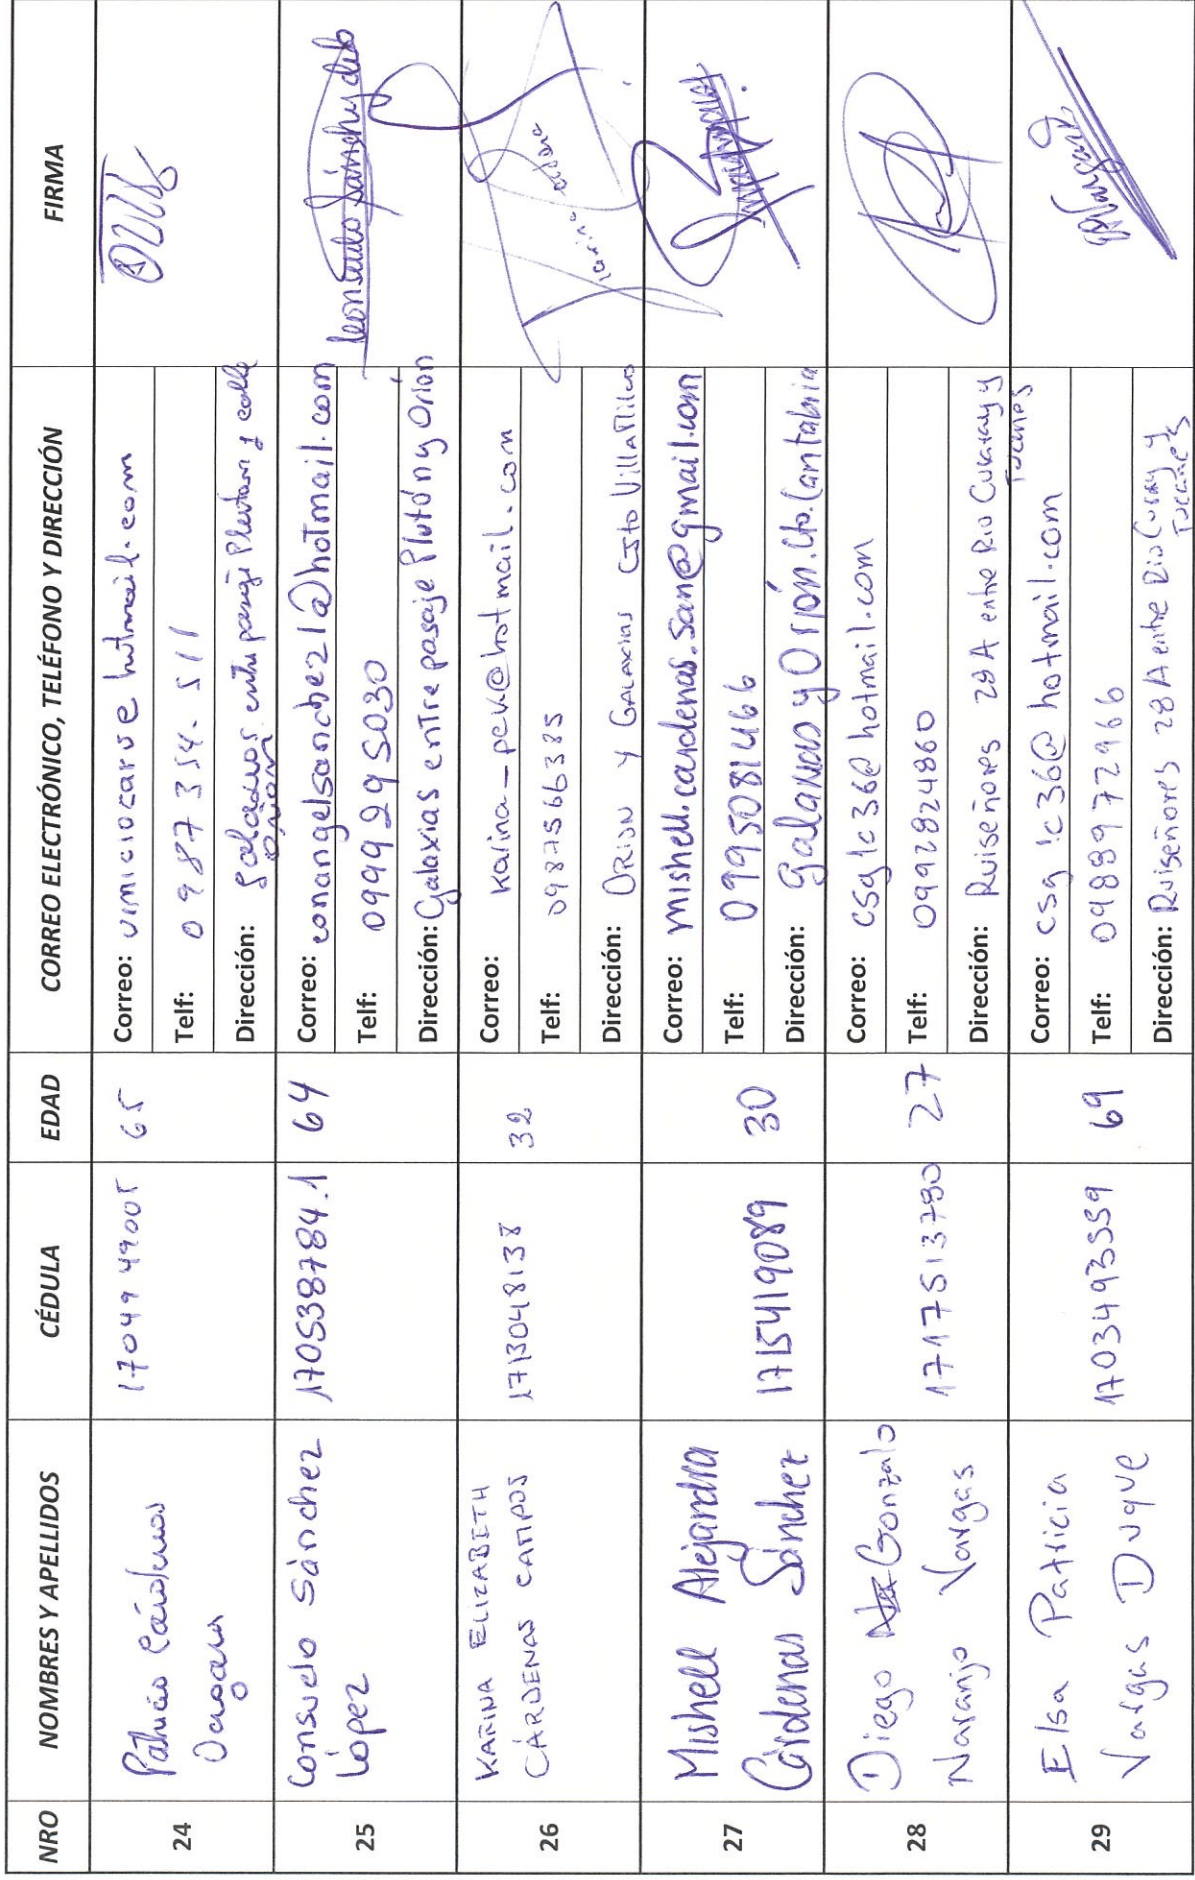 NRO NOMBRES Y APELLIDOS CÉDULA EDAD CORREO ELECTRÓNICO, TELÉFONO Y DIRECCIÓN FIRMA
24
Patricio Cárdenas
1704949005
65
Correo: viniciocarve hotmail.com
Telf: 0987354-511
Dirección: entre pasaje y calle
Orión
25
Consuelo Sánchez
López
170538784.1
64
Correo: conangelsanchez1@hotmail.com
Telf: 0999295030
Dirección: Galaxias entre pasaje Plutón y Orión
Consuelo Sánchez de
26
KARINA ELIZABETH
CÁRDENAS CAMPOS
1713048138
32
Correo: karina_pek@hotmail.com
Telf: 0987566385
Dirección: ORION Y GALAXIAS
27
Mishell Alejandra
Cárdenas Sánchez
1715419089
30
Correo: mishell.cardenas.san@gmail.com
Telf: 0995081466
Dirección: galaxias y Orión. Cto. Cantabria
28
Diego Gonzalo
Naranjo Vargas
1717513780
27
Correo: csg1c36@hotmail.com
Telf: 0992824860
Dirección: Ruiseñores 28A entre Rio Curaray y
Tucanes
29
Elsa Patricia
Vargas Duque
1703493559
69
Correo: csg1c36@hotmail.com
Telf: 0988972966
Dirección: Ruiseñores 28A entre Rio Curaray y
Tucanes